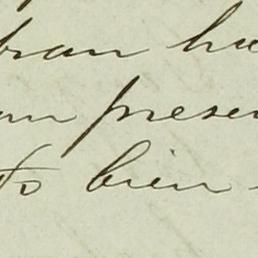 bran ha
un presen
to bien